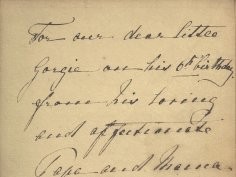 For our dear little
Gorgie on his 6th birthday,
from his loving
and affectionate
Papa and Mama.